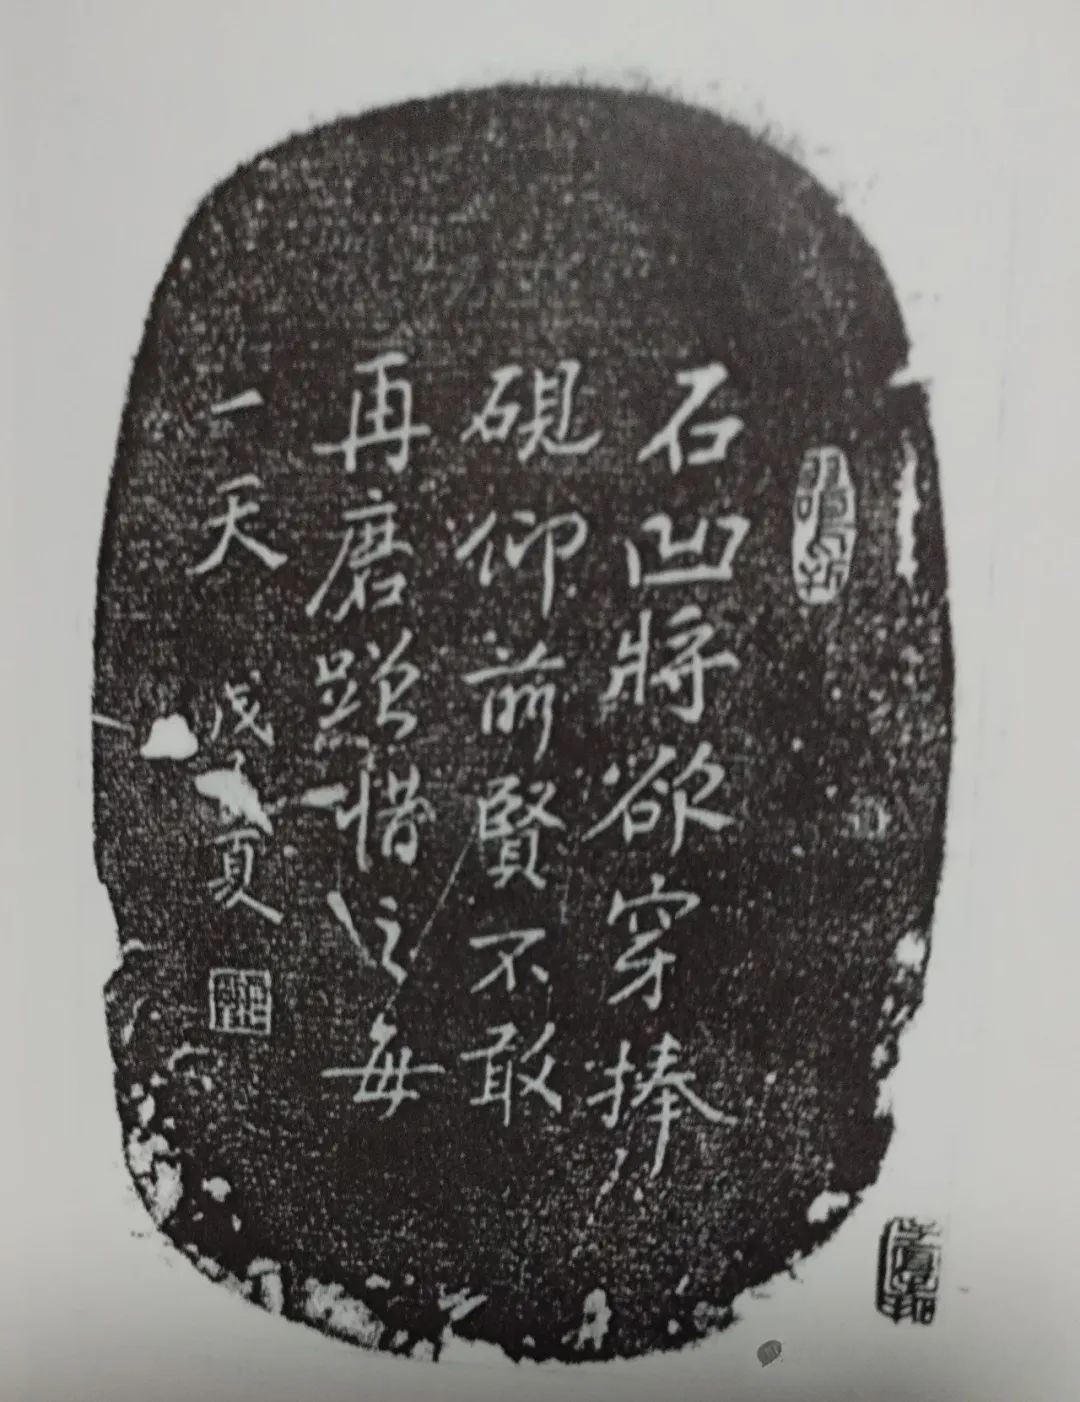 石凹將欲穿捧
硯仰前賢不敢
再磨蹭惜之每
一天 戊子夏